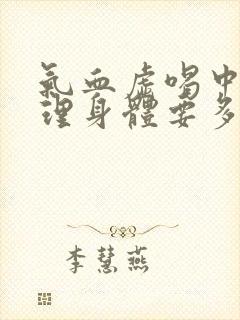 氣血虛喝中
理身體要多
李慧燕